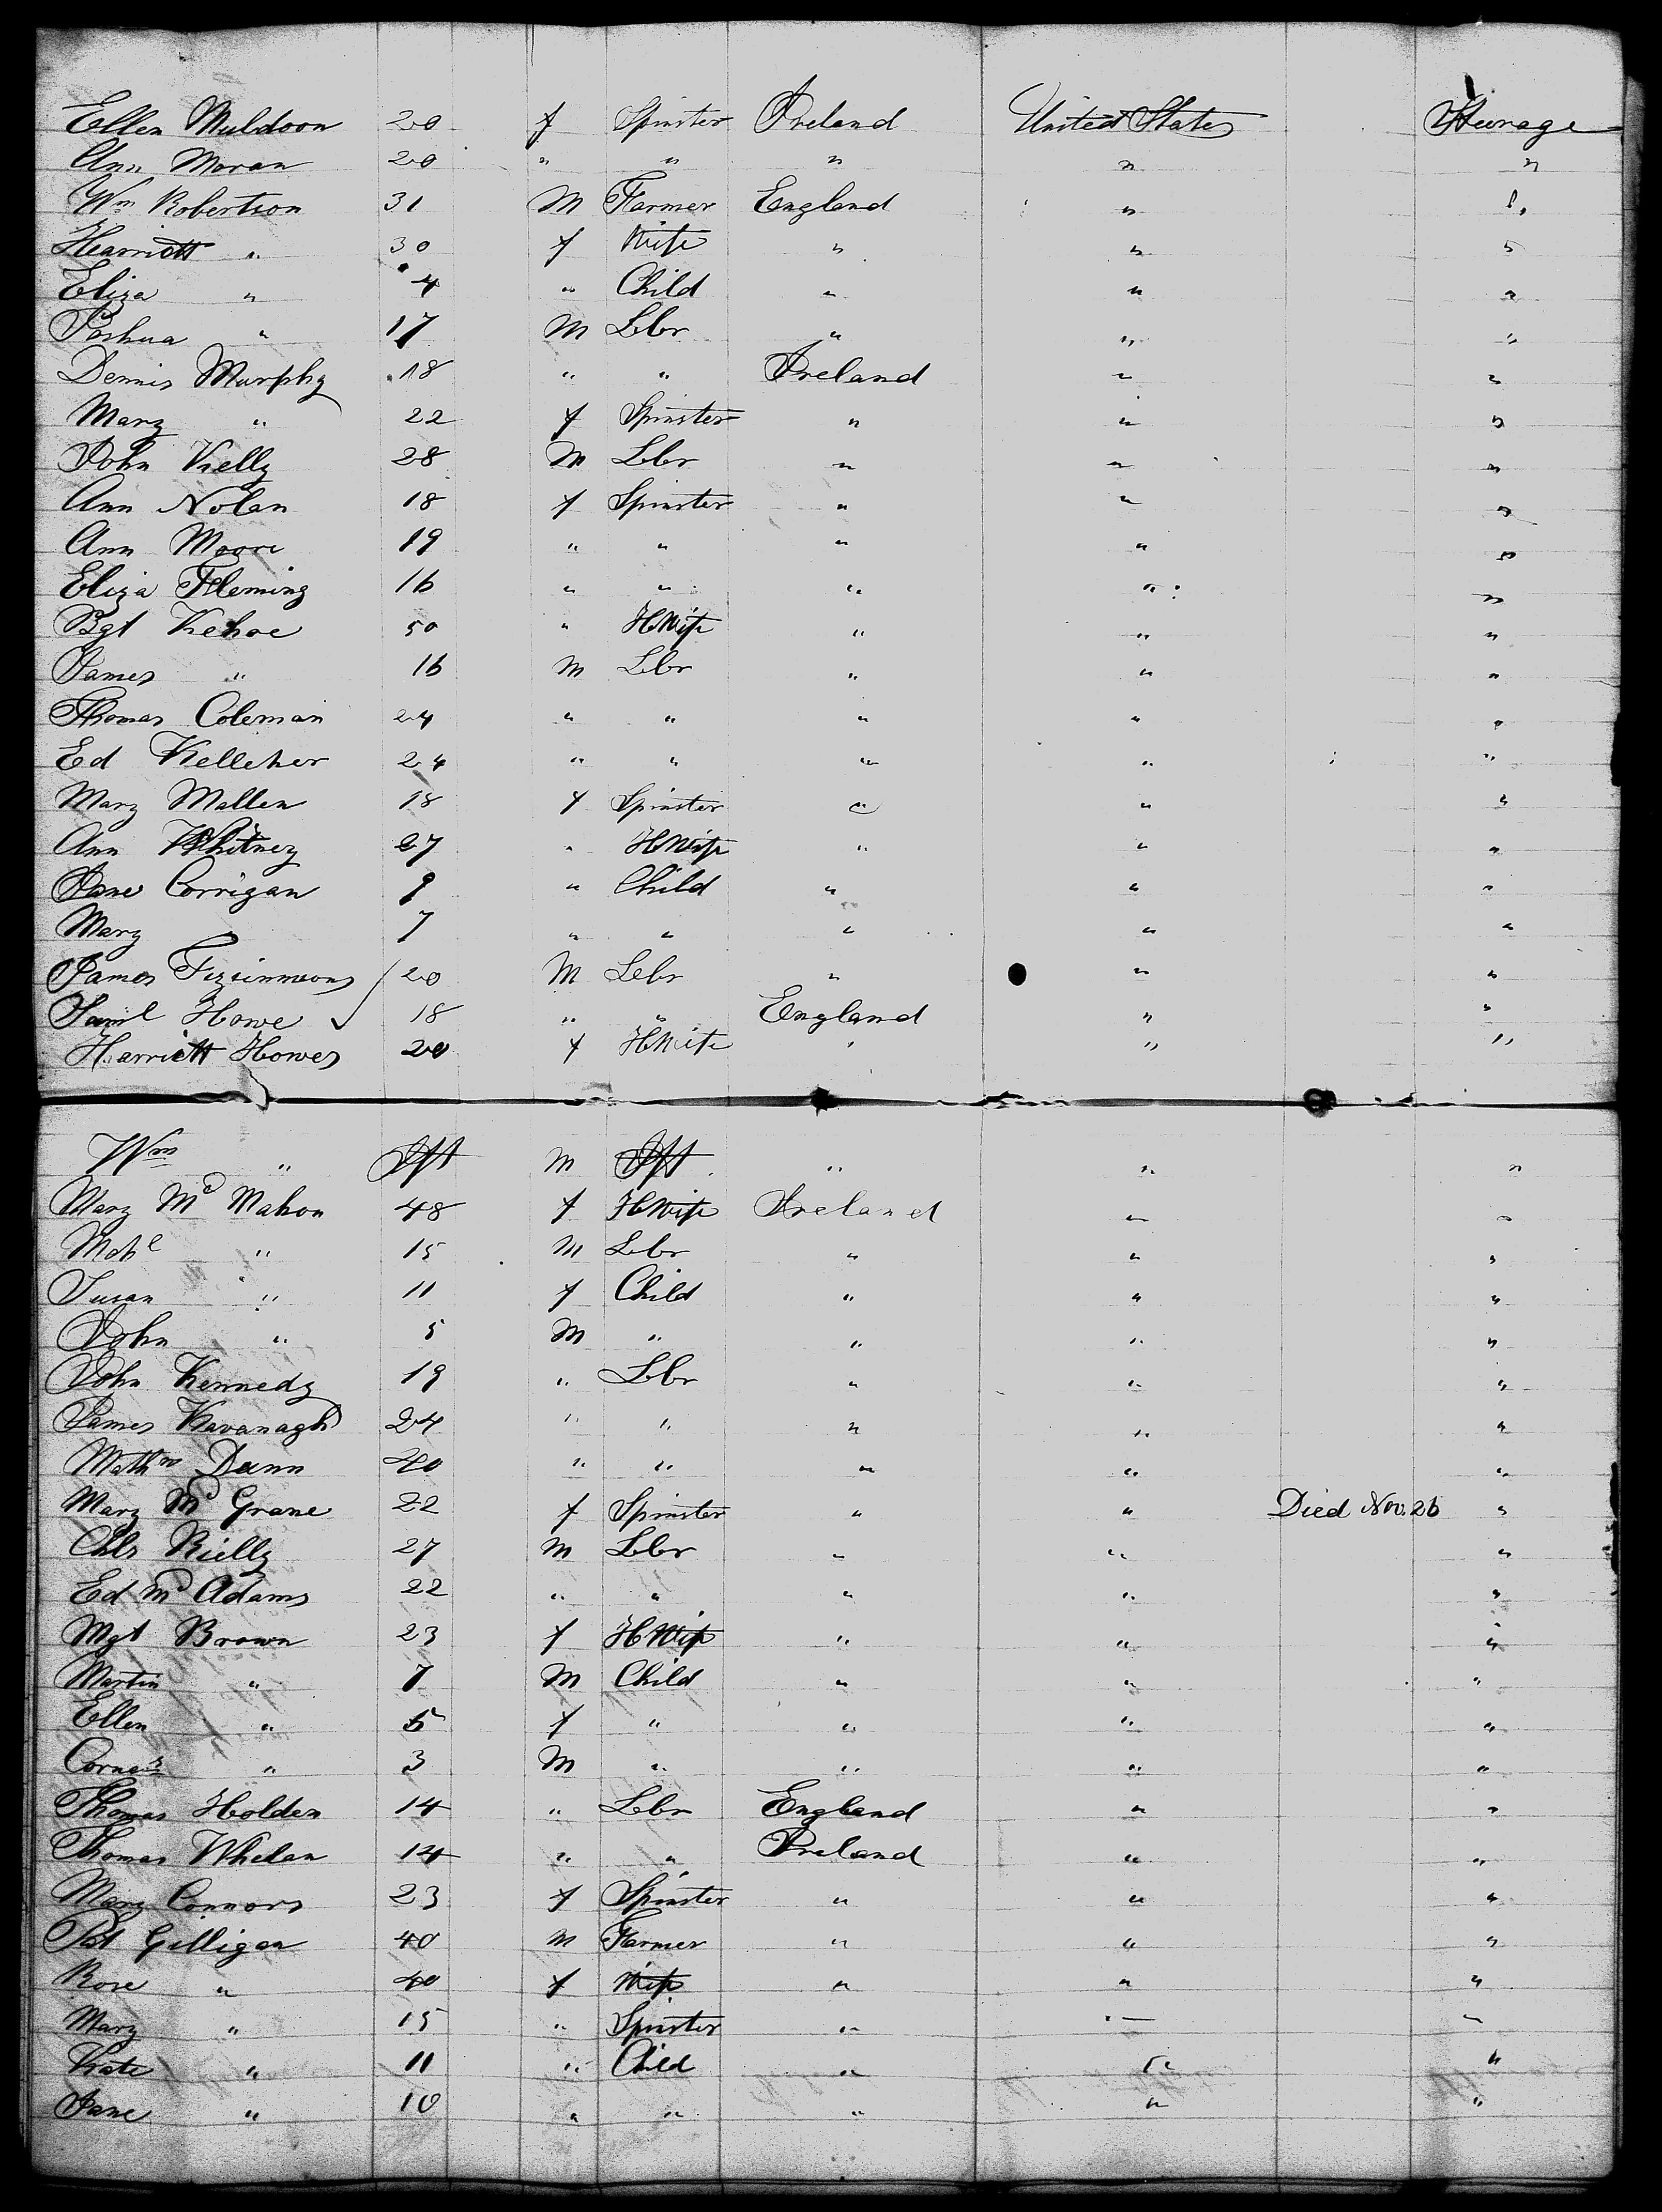 Ellen Muldoon 20 f Spinster Ireland United States Steerage
Ann Moran 20 " " " " "
Wm Robertson 31 M Farmer England " "
Harriott " 30 f Wife " " "
Eliza " 4 " Child " " "
Joshua " 17 M Lbr " " "
Dennis Murphy 18 " " Ireland " "
Mary " 22 f Spinster " " "
John Kelly 28 M Lbr " " "
Ann Nolan 18 f Spinster " " "
Ann Moore 19 " " " " "
Eliza Fleming 16 " " " " "
Bgt Kehoe 50 " HWife " " "
James " 16 M Lbr " " "
Thomas Coleman 24 " " " " "
Ed Kelleher 24 " " " " "
Mary Mallen 18 f Spinster " " "
Ann Whitney 27 " HWife " " "
Jane Corrigan 9 " Child " " "
Mary 7 " " " " "
James Fizsimmons 20 M Lbr " " "
Saml Howe 18 " " England " "
Harriett Howes 20 f HWife " " "
Wm " Ift M Ift " " "
Mary Mc Mahon 48 f HWife Ireland " "
Mchl " 15 M Lbr " " "
Susan " 11 f Child " " "
John " 5 M " " " "
John Kennedy 19 " Lbr " " "
James Kavanagh 24 " " " " "
Mathw Dunn 40 " " " " "
Mary Mc Grane 22 f Spinster " " Died Nov. 26 "
Chls Rielly 27 M Lbr " " "
Ed Mc Adams 22 " " " " "
Mgt Brown 23 f HWife " " "
Martin " 7 M Child " " "
Ellen " 5 f " " " "
Corns " 3 M " " " "
Thomas Holden 14 " Lbr England " "
Thomas Whelan 14 " " Ireland " "
Mary Connors 23 f Spinster " " "
Pat Gilligan 40 M Farmer " " "
Rose " 40 f Wife " " "
Mary " 15 " Spinster " " "
Kate " 11 " Child " " "
Jane " 10 " " " " "